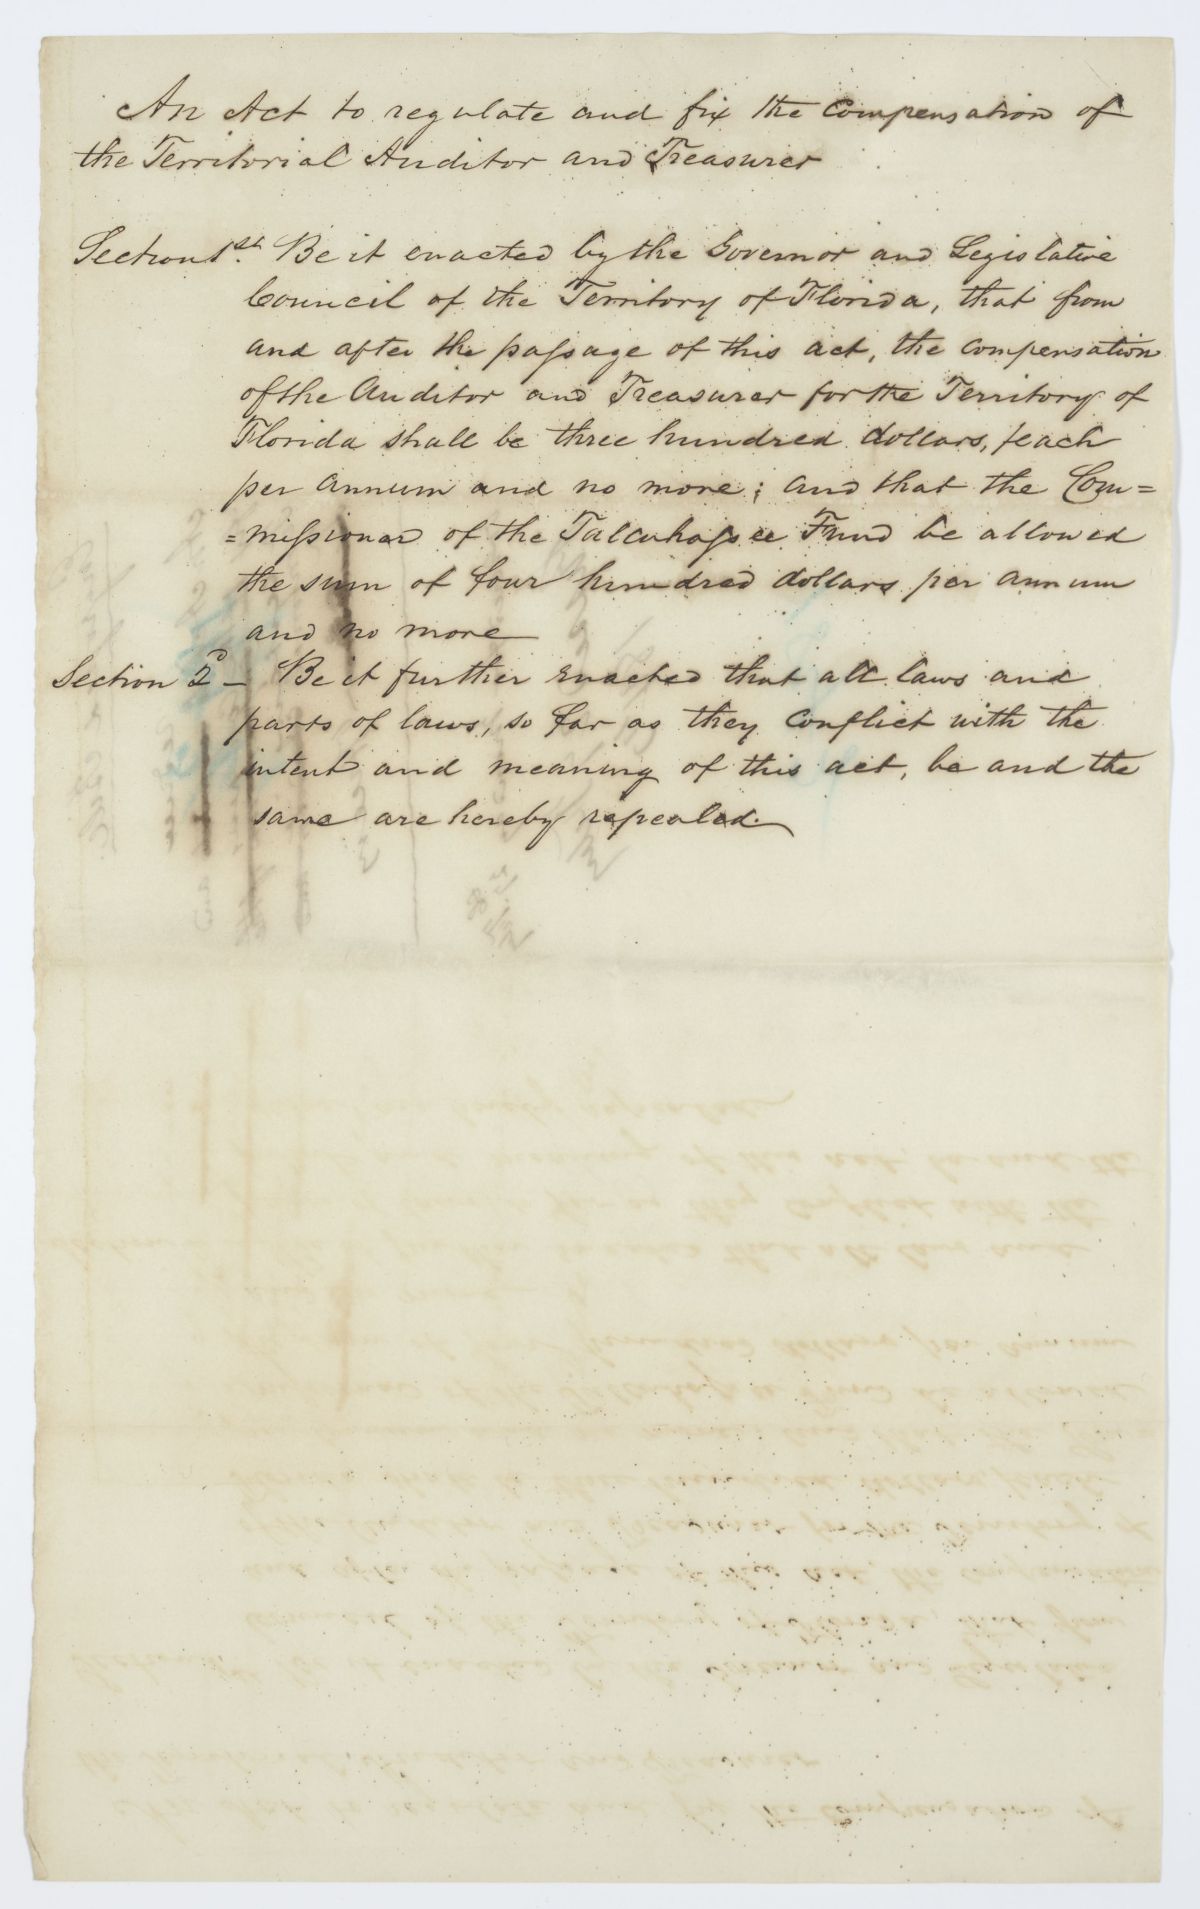 An Act to regulate and fix the Compensation of
the Territorial Auditor and Treasurer
Section 1st. Be it enacted by the Governor and Legislative
Council of the Territory of Florida, that from
and after the passage of this act, the compensation
of the Auditor and Treasurer for the Territory of
Florida shall be three hundred dollars, each
per annum and no more; and that the Com=
=missioner of the Tallahassee Fund be allowed
the sum of four hundred dollars per annum
and no more
Section 2d - Be it further enacted that all laws and
parts of laws, so far as they conflict with the
intent and meaning of this act, be and the
same are hereby repealed.